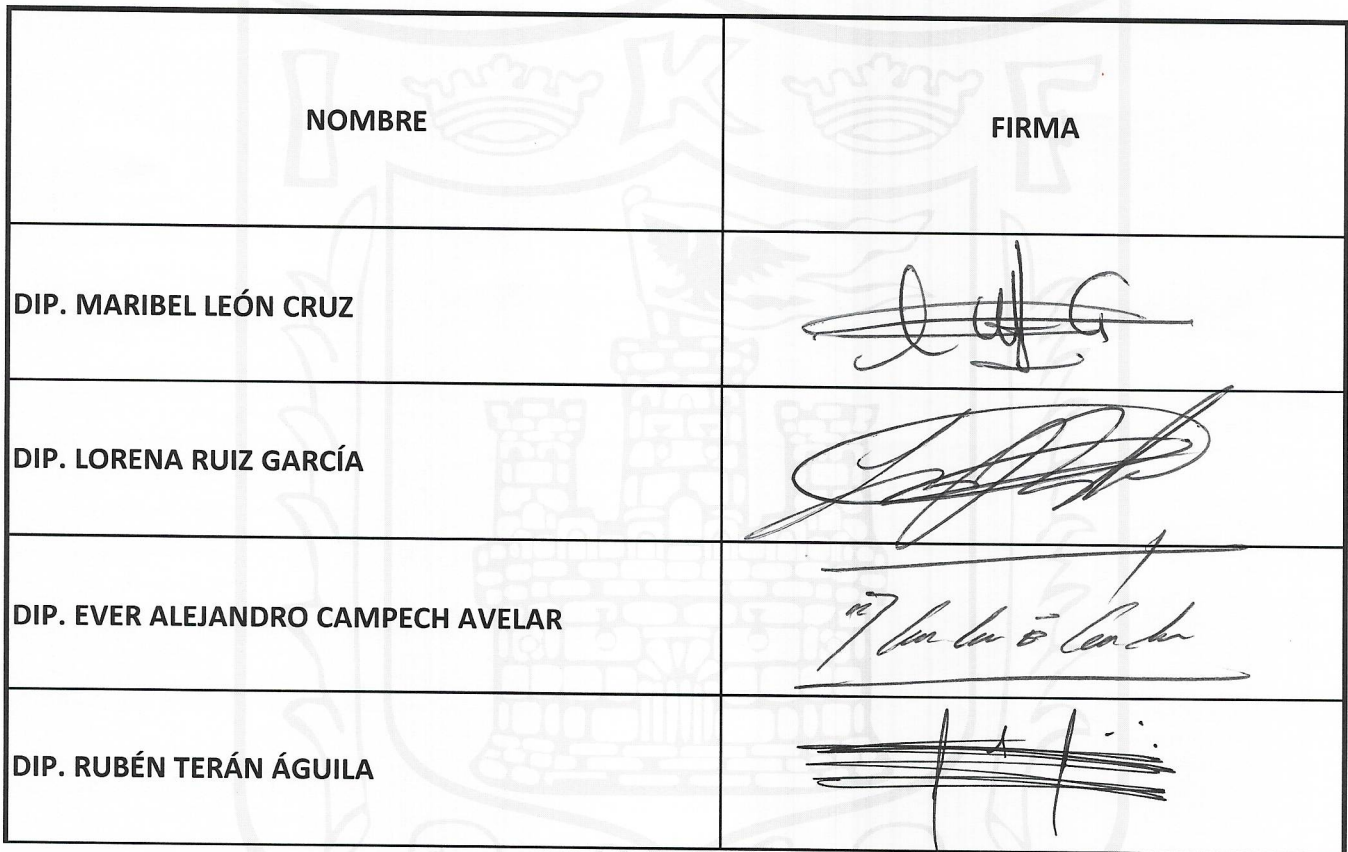 I K F
NOMBRE FIRMA
DIP. MARIBEL LEÓN CRUZ
DIP. LORENA RUIZ GARCÍA
DIP. EVER ALEJANDRO CAMPECH AVELAR
DIP. RUBÉN TERÁN ÁGUILA